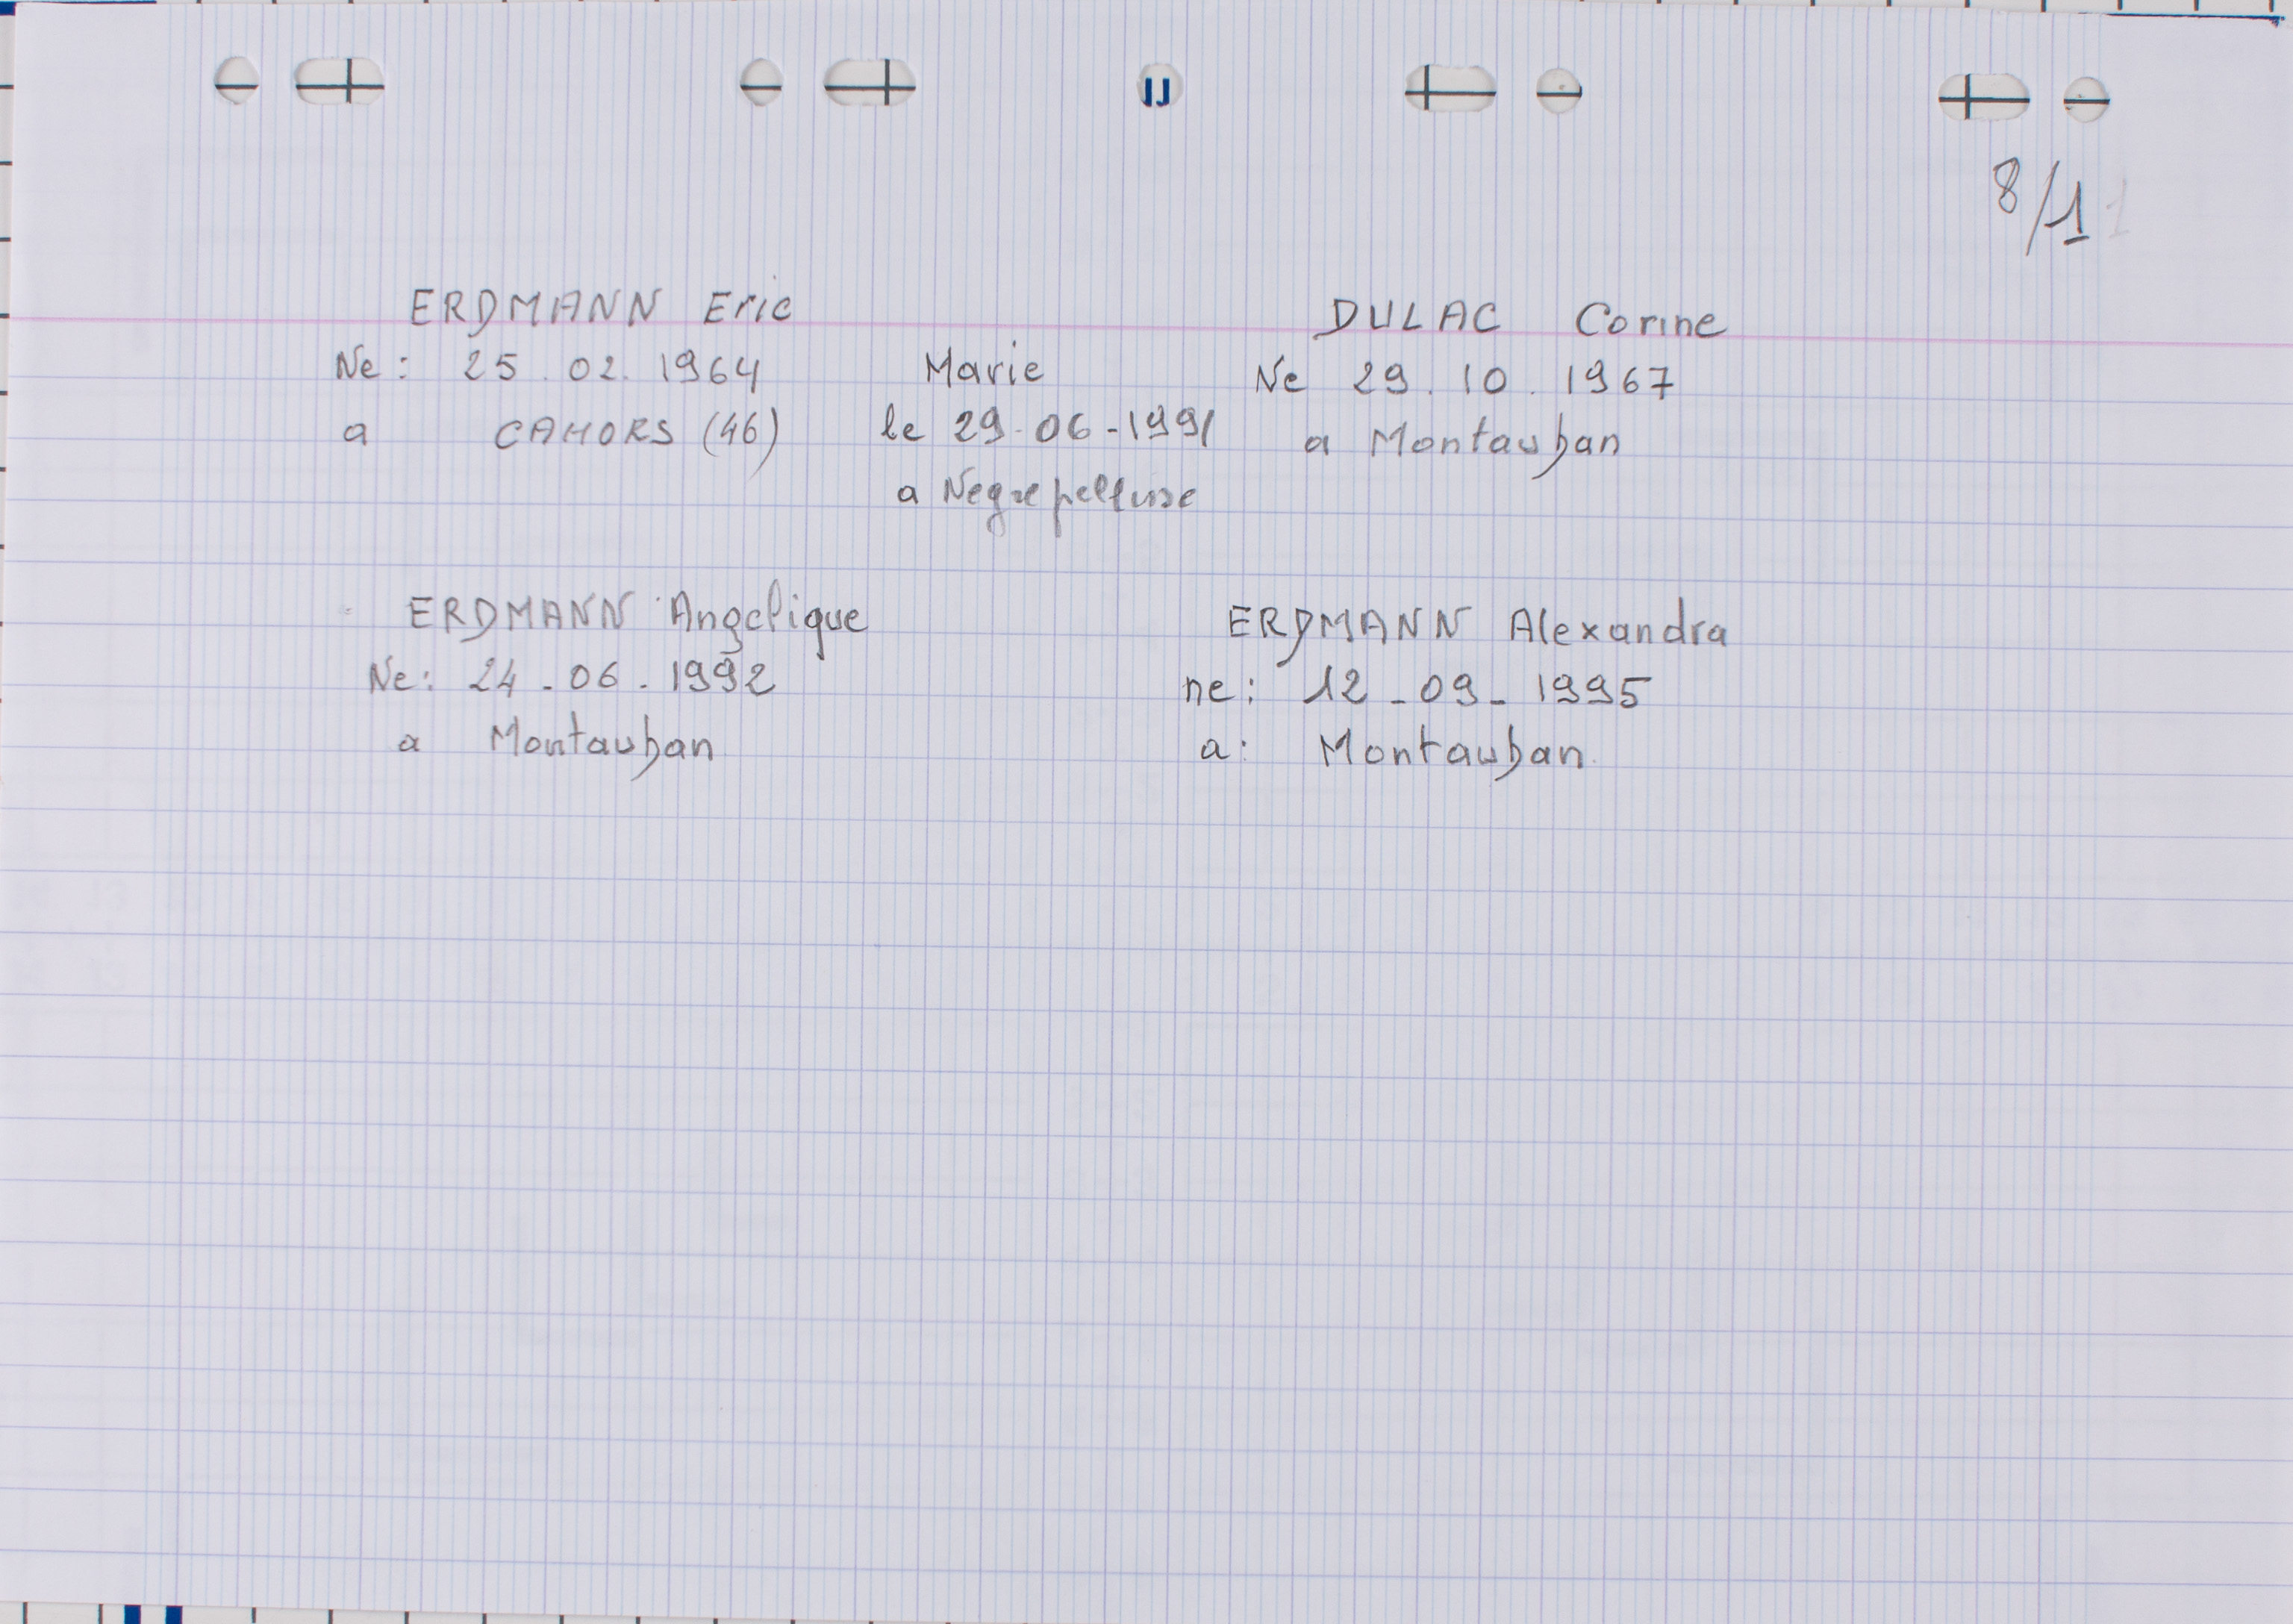 8/1
ERDMANN Eric
Ne : 25 . 02 . 1964
a CAHORS (46)
Marie
le 29-06-1991
a Negrepelisse
DULAC Corine
Ne 29 . 10 . 1967
a Montauban
ERDMANN Angelique
Ne : 24 - 06 - 1992
a Montauban
ERDMANN Alexandra
ne : 12 - 09 - 1995
a : Montauban